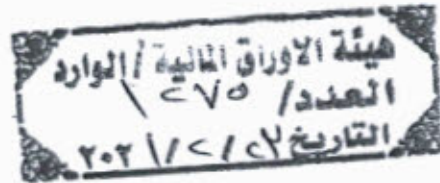 هيئة الاوراق المالية / الوارد
العدد / ١٢٧٥
التاريخ ٢٣ / ٢ / ٢٠٢١